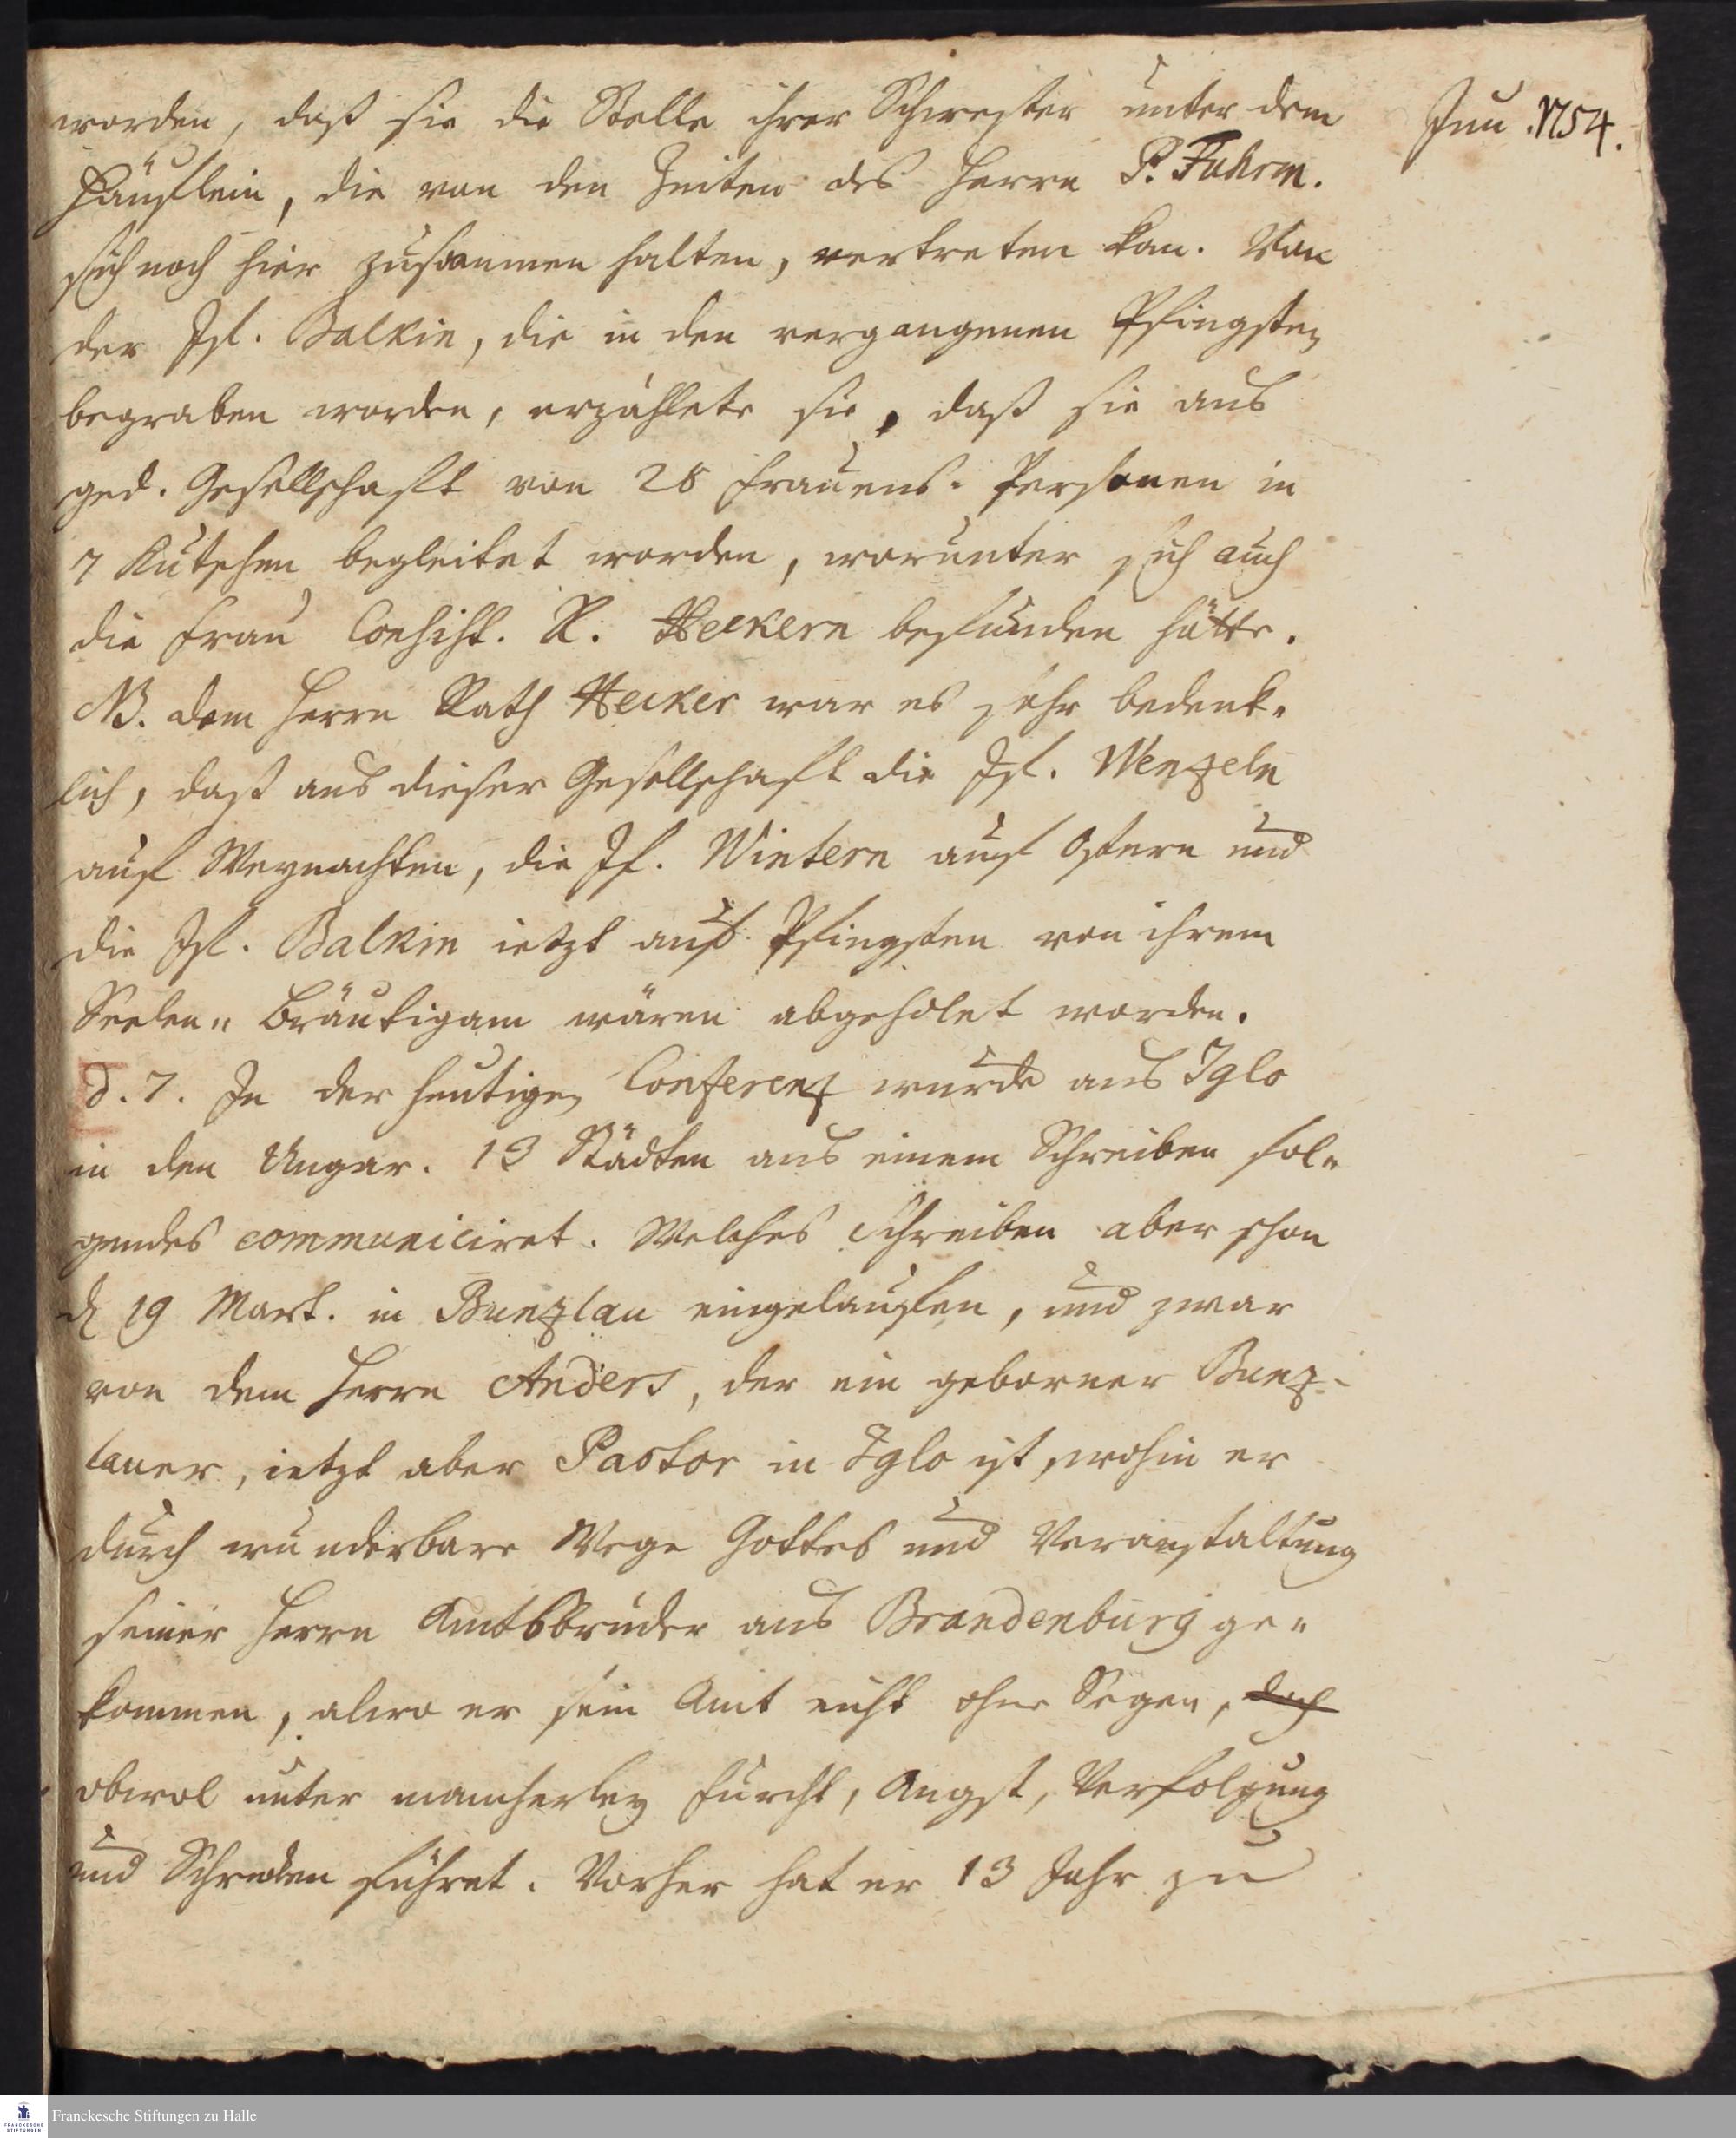 worden, daß sie die Stelle ihrer Schwester unter dem
Häuflein, die von den Zeiten des Herrn P. Fuhrm.
sich noch hier zusammen halten, vertreten kan. Von
der Jfl. Balkin, die in den vergangenen Pfingsten
begraben worden, erzählete sie, daß sie aus
ged. Gesellschaft von 28 Frauens-Personen in
7 Kutschen begleitet worden, worunter sich auch
die Frau Consist. R. Heckern befunden hätte.
NB. dem Herrn Rath Hecker war es sehr bedenk-
lich, daß aus dieser Gesellschaft die Jfl. Wenzeln
auf Weynachten, die Jf. Wintern auf Ostern und
die Jfl. Balkin ietzt auf Pfingsten von ihrem
Seelen-Bräutigam wären abgeholet worden.
d. 7. In der heutigen Conferenz wurde aus Iglo
in den Ungar. 13 Städten aus einem Schreiben fol-
gendes communiciret. Welches Schreiben aber schon
d 19 Mart. in Bunzlau eingelauffen, und zwar
von dem Herrn Anders, der ein geborner Bunz-
lauer, ietzt aber Pastor in Iglo ist, wohin er
durch wunderbare Wege Gottes und Veranstaltung
seiner Herrn Amtsbrüder aus Brandenburg ge-
kommen, alwo er sein Amt nicht ohne Segen, doch
obwol unter mancherley Furcht, Angst, Verfolgung
und Schrecken führet. Vorher hat er 13 Jahr zu
Jun. 1754.
Franckesche Stiftungen zu Halle
FRANCKESCHE STIFTUNGEN